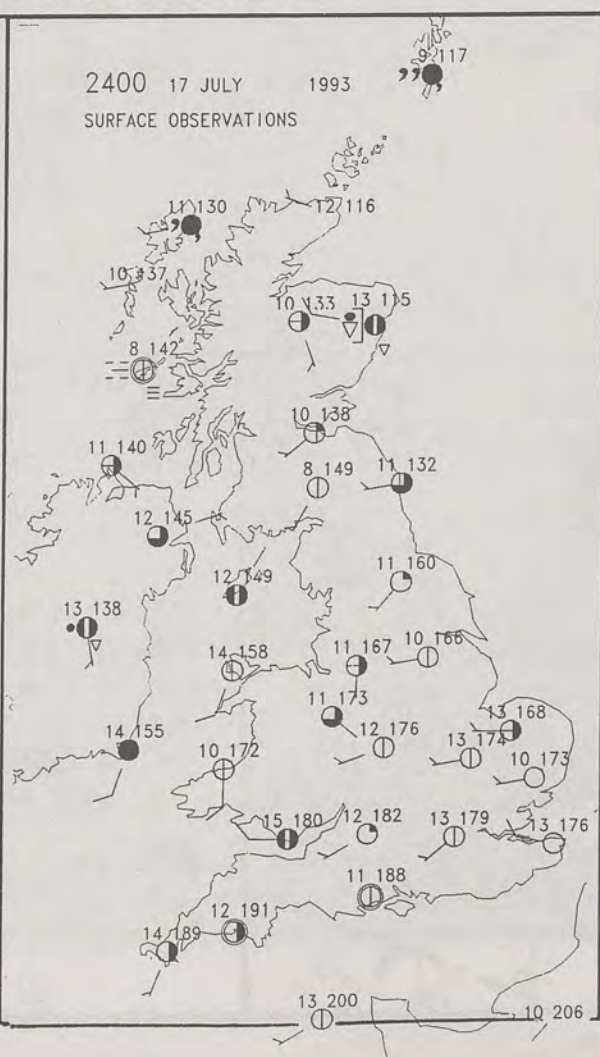 9 117
2400 17 JULY 1993
SURFACE OBSERVATIONS
11 130
12 116
10 137
10 133
13 115
8 142
10 138
11 140
8 149
11 132
12 145
12 149
11 160
13 138
14 158
11 167
10 166
11 173
12 176
13 168
14 155
10 172
13 174
10 173
15 180
12 182
13 179
13 176
11 188
14 189
12 191
13 200
10 206